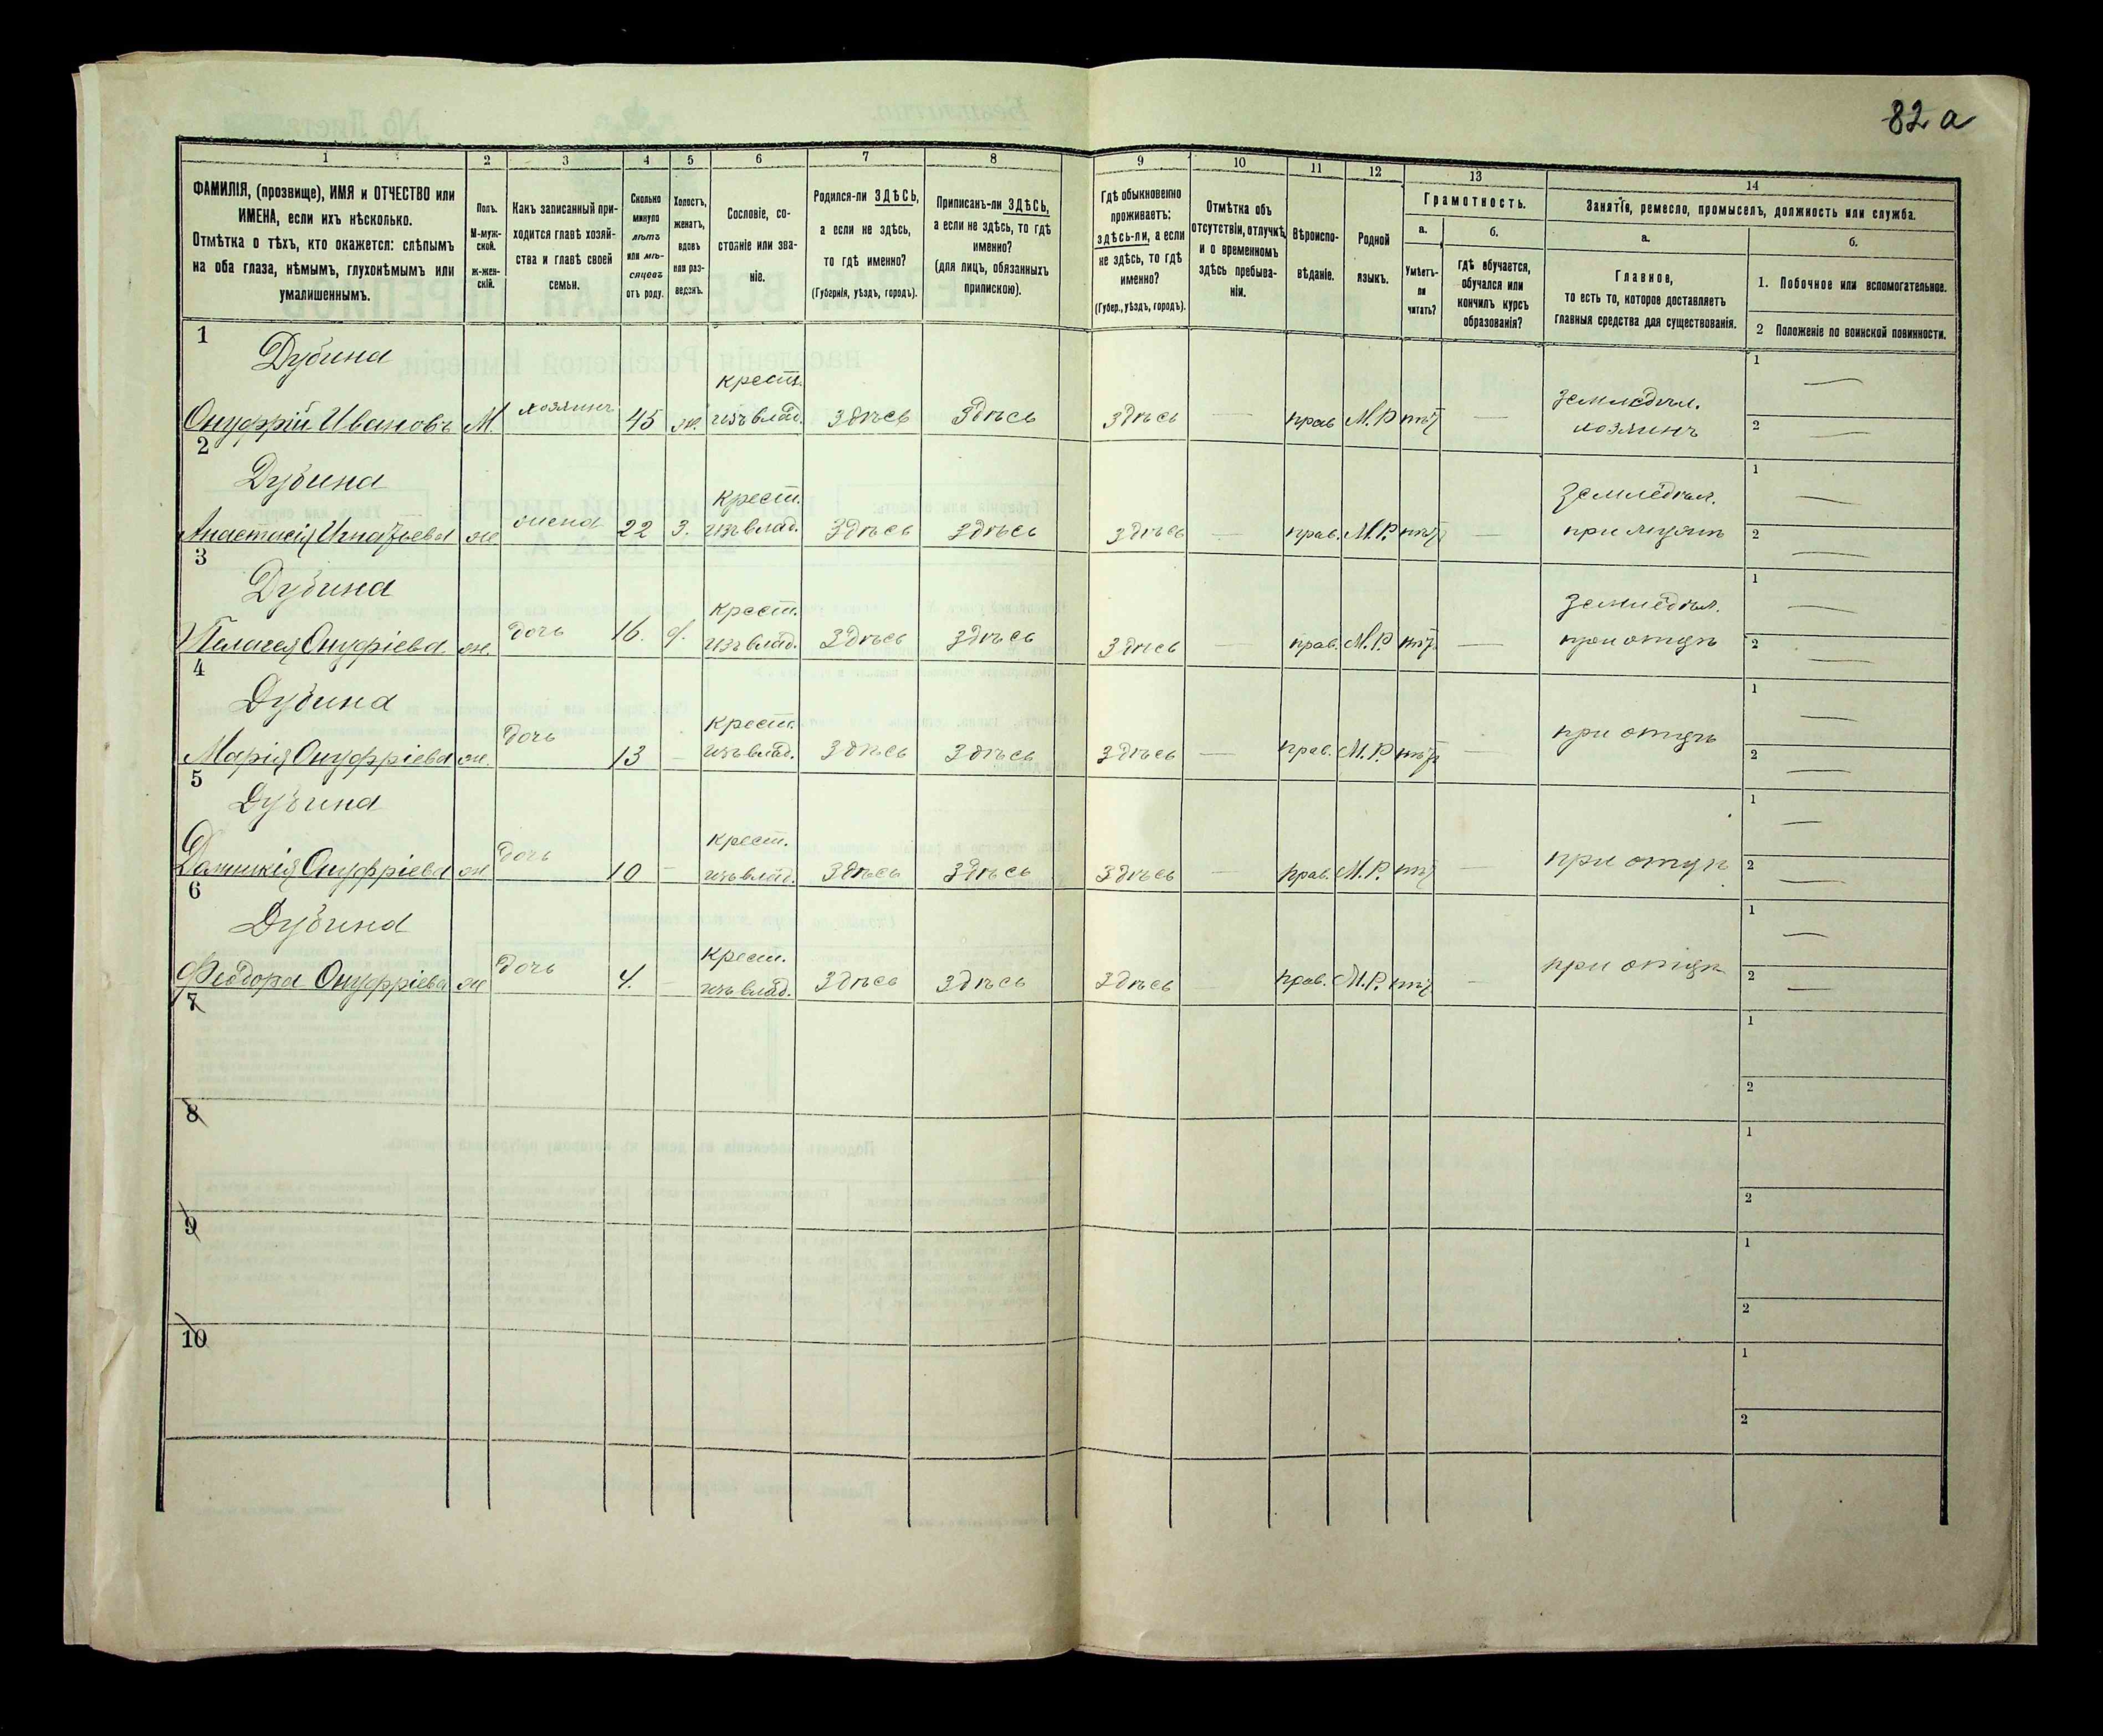 82 а
1
2
3
4
5
6
7
8
9
10
11
12
13
14
ФАМИЛІЯ, (прозвище), ИМЯ и ОТЧЕСТВО или
ИМЕНА, если ихъ нѣсколько.
Отмѣтка о тѣхъ, кто окажется: слѣпымъ
на оба глаза, нѣмымъ, глухонѣмымъ или
умалишеннымъ.
Полъ.
М-муж-
ской.
ж-жен-
скій.
Какъ записанный при-
ходится главѣ хозяй-
ства и главѣ своей
семьи.
Сколько
минуло
лѣтъ
или мѣ-
сяцевъ
отъ роду.
Холостъ,
женатъ,
вдовъ
или раз-
веденъ.
Сословіе, со-
стояніе или зва-
ніе.
Родился-ли ЗДѢСЬ,
а если не здѣсь,
то гдѣ именно?
(Губернія, уѣздъ, городъ).
Приписанъ-ли ЗДѢСЬ,
а если не здѣсь, то гдѣ
именно?
(для лицъ, обязанныхъ
припискою).
Гдѣ обыкновенно
проживаетъ:
здѣсь-ли, а если
не здѣсь, то гдѣ
именно?
(Губер., уѣздъ, городъ).
Отмѣтка объ
отсутствіи, отлучкѣ
и о временномъ
здѣсь пребыва-
ніи.
Вѣроиспо-
вѣданіе.
Родной
языкъ.
Грамотность.
а.
б.
Умѣетъ-
ли
читать?
гдѣ обучается,
обучался или
кончилъ курсъ
образованія?
Занятіе, ремесло, промыселъ, должность или служба.
а.
б.
Главное,
то есть то, которое доставляетъ
главныя средства для существованія.
1. Побочное или вспомогательное.
2 Положеніе по воинской повинности.
1
Дубина
Онуфрій Ивановъ М. хозяинъ 45 ж. крест. изъ влад. здѣсь здѣсь здѣсь — прав М.Р нѣт — земледѣл. хозяинъ
1 —
2 —
2
Дубина
Анастасія Игнатьева ж жена 22 з. крест. изъ влад. здѣсь здѣсь здѣсь — прав. М.Р. нѣт — земледѣл. при мужѣ
1 —
2 —
3
Дубина
Пелагея Онуфріева ж. дочь 16. д. крест. изъ влад. здѣсь здѣсь здѣсь — прав. М.Р. нѣт — земледѣл. при отцѣ
1 —
2 —
4
Дубина
Марія Онуфріева ж. дочь 13 — крест. изъ влад. здѣсь здѣсь здѣсь — прав. М.Р. нѣт — при отцѣ
1 —
2 —
5
Дубина
Домникія Онуфріева ж дочь 10 — крест. изъ влад. здѣсь здѣсь здѣсь — прав. М.Р. нѣт — при отцѣ
1 —
2 —
6
Дубина
Феодора Онуфріева ж дочь 4. — крест. изъ влад. здѣсь здѣсь здѣсь — прав. М.Р. нѣт — при отцѣ
1 —
2 —
7
1
2
8
1
2
9
1
2
10
1
2